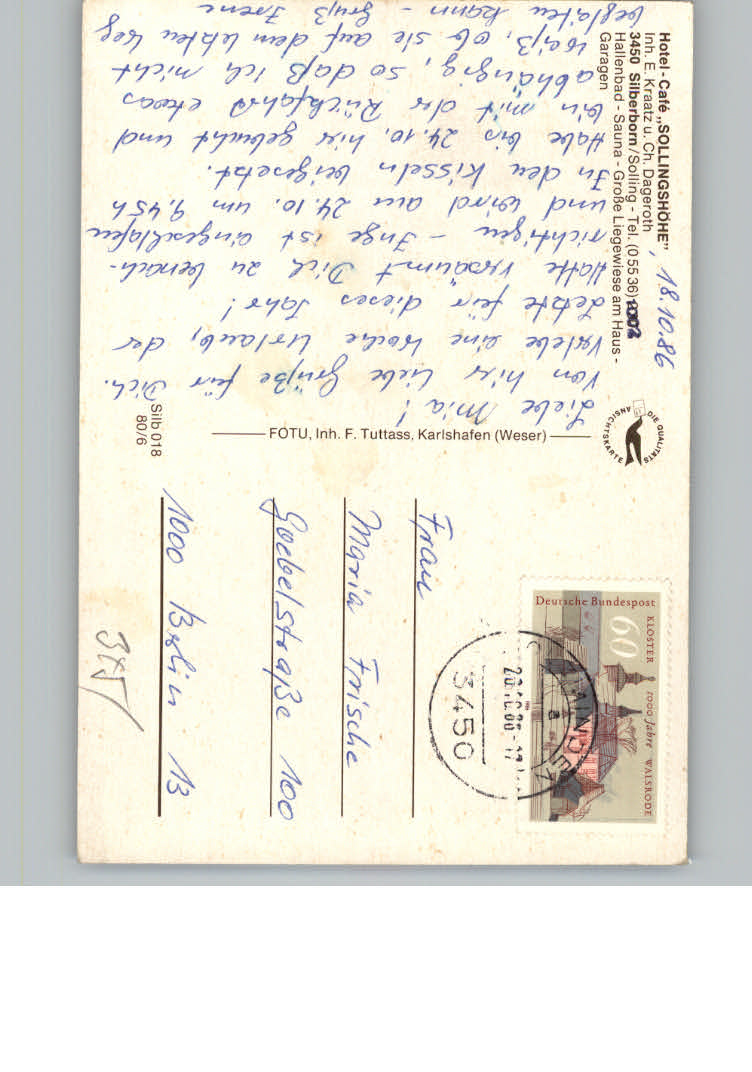 Hotel - Café „SOLLINGSHÖHE"
Inh. E. Kraatz u. Ch. Dageroth
3450 Silberborn/Solling - Tel. (0 55 36) 1002
Hallenbad - Sauna - Große Liegewiese am Haus -
Garagen
, 18.10.86
Liebe Mia!
Von hier liebe Grüße für Dich.
Verlebe eine Woche Urlaub, der
letzte für dieses Jahr!
Hatte versäumt Dich zu benach-
richtigen - Inge ist eingeschlafen
und wird am 24.10. um 9.45 h
In den Kisseln beigesetzt.
Habe bis 24.10. hier gebucht und
bin mit der Rückfahrt etwas
abhängig, so daß ich nicht
weiß, ob sie auf dem letzten Weg
begleiten kann - Gruß Irene
DIE QUALITÄTS
ANSICHTSKARTE
FOTU, Inh. F. Tuttass, Karlshafen (Weser)
Silb 018
80/6
Deutsche Bundespost
60
KLOSTER 1000 Jahre WALSRODE
3450
20.10.86-17
Frau
Maria Frische
Goebelstraße 100
1000 Berlin 13